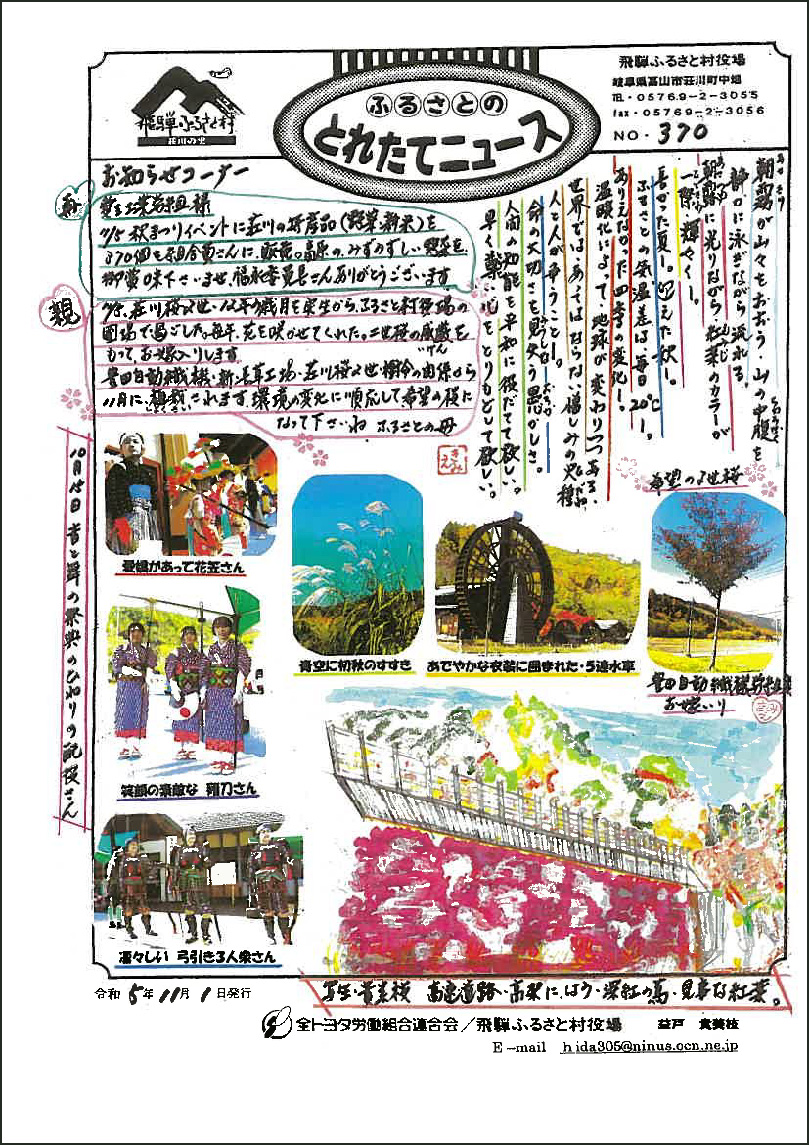 飛騨ふるさと村
荘川の里
ふるさとの
とれたてニュース
飛騨ふるさと村役場
岐阜県高山市荘川町中畑
TEL・05769-2-3055
fax・05769-2-3056
NO・370
朝霧が山々をおおう・山の中腹を
静かに泳ぎながら流れる。
朝露に光りながら紅葉のカラーが
一際輝やく!。
長かった夏!。迎えた秋!。
ふるさとの気温差は毎日20℃!。
ありえなかった四季の変化!。
温暖化によって地球が変わりつつある。
世界では、あってはならない憎しみの火種
人と人が争うこと!。
命の大切さを見失う愚かしさ。
人間の知能を平和に役だてて欲しい。
早く楽しい心をとりもどして欲しい。
お知らせコーナー
様
11/5 秋まつりイベントに荘川の特産品(野菜・新米)を
370個を組合員さんに、販売。高原の、みずみずしい野菜を
御賞味下さいませ、福永委員長さんありがとうございます
親
荘川桜2世・
圃場で過ごした。毎年、花を咲かせてくれた。二世桜の威厳を
もって、お嫁入りします
豊田自動織機・新・長草工場・荘川桜2世
11月に、植樹されます、環境の変化に順応して希望の桜に
なって下さいね ふるさとの母
希望の2世桜
愛嬌があって花笠さん
青空に初秋のすすき
あでやかな衣装に囲まれた・5連水車
お嫁いり
笑顔の素敵な 薙刀さん
凛々しい 弓引き3人衆さん
令和 5年 11月 1日発行
高速道路・高架に、はう・深紅の蔦・見事な紅葉。
全トヨタ労働組合連合会/飛騨ふるさと村役場 益戸 貴美枝
E-mail hida305@ninus.ocn.ne.jp